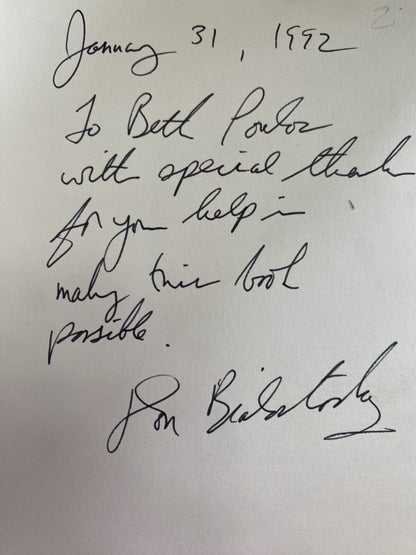 January 31, 1992
To Beth Poulos
with special thanks
for your help in
making this book
possible.
Don Bialostosky